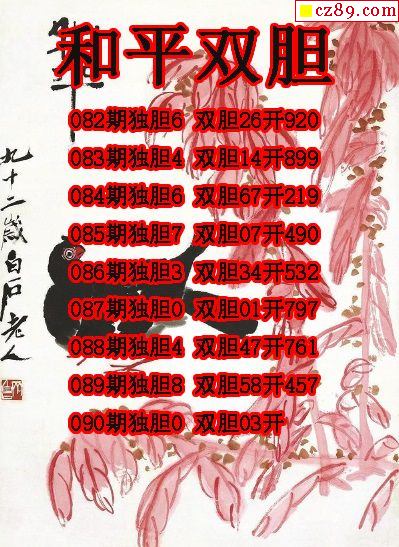 cz89.com
和平双胆
082期独胆6 双胆26开920
083期独胆4 双胆14开899
084期独胆6 双胆67开219
085期独胆7 双胆07开490
086期独胆3 双胆34开532
087期独胆0 双胆01开797
088期独胆4 双胆47开761
089期独胆8 双胆58开457
090期独胆0 双胆03开
九十二岁白石老人